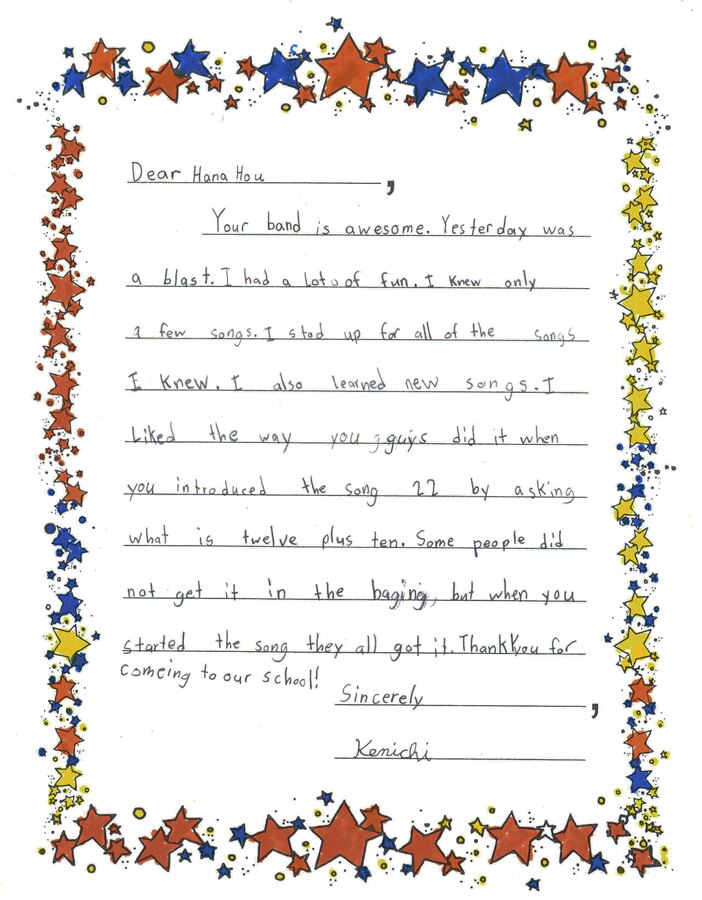 Dear Hana Hou,
Your band is awesome. Yesterday was
a blast. I had a lots of fun. I knew only
a few songs. I stod up for all of the songs
I knew. I also learned new songs. I
liked the way you guys did it when
you introduced the song 22 by asking
what is twelve plus ten. Some people did
not get it in the baging, but when you
started the song they all got it. Thank you for
comeing to our school!
Sincerely,
Kenichi